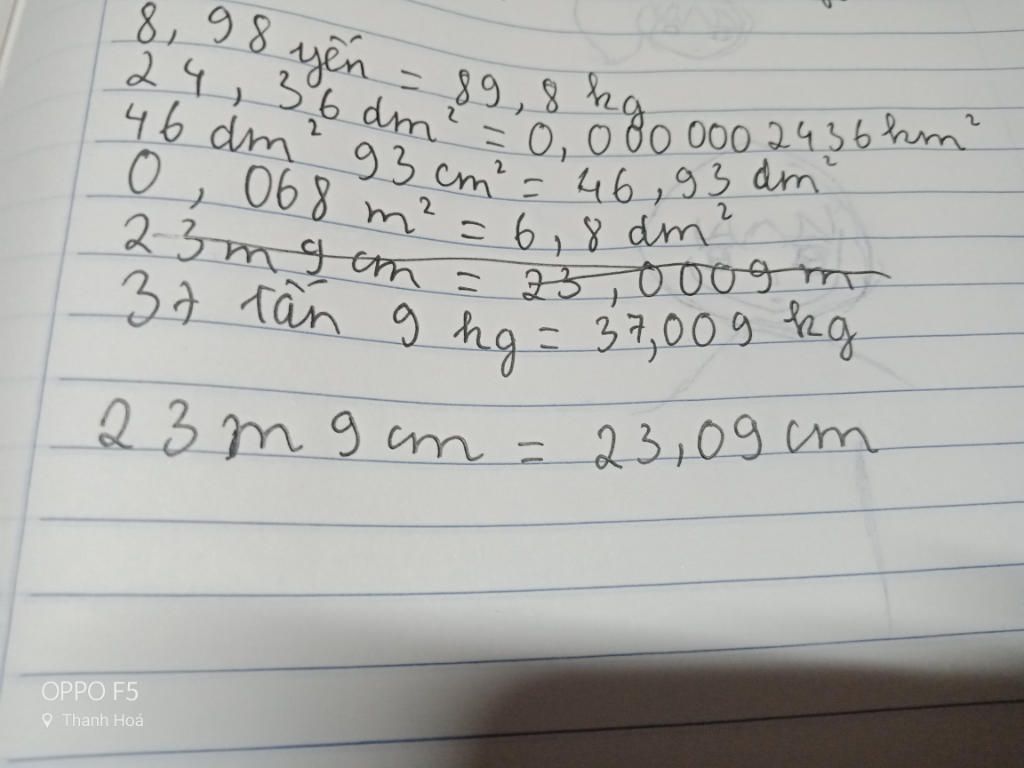 8, 98 yến = 89, 8 kg
24, 36 dm² = 0, 0000002436 km²
46 dm² 93 cm² = 46, 93 dm²
0, 068 m² = 6, 8 dm²
23 m 9 cm = 23, 0009 m
37 tấn 9 kg = 37,009 kg
23 m 9 cm = 23,09 cm
OPPO F5
Thanh Hoá